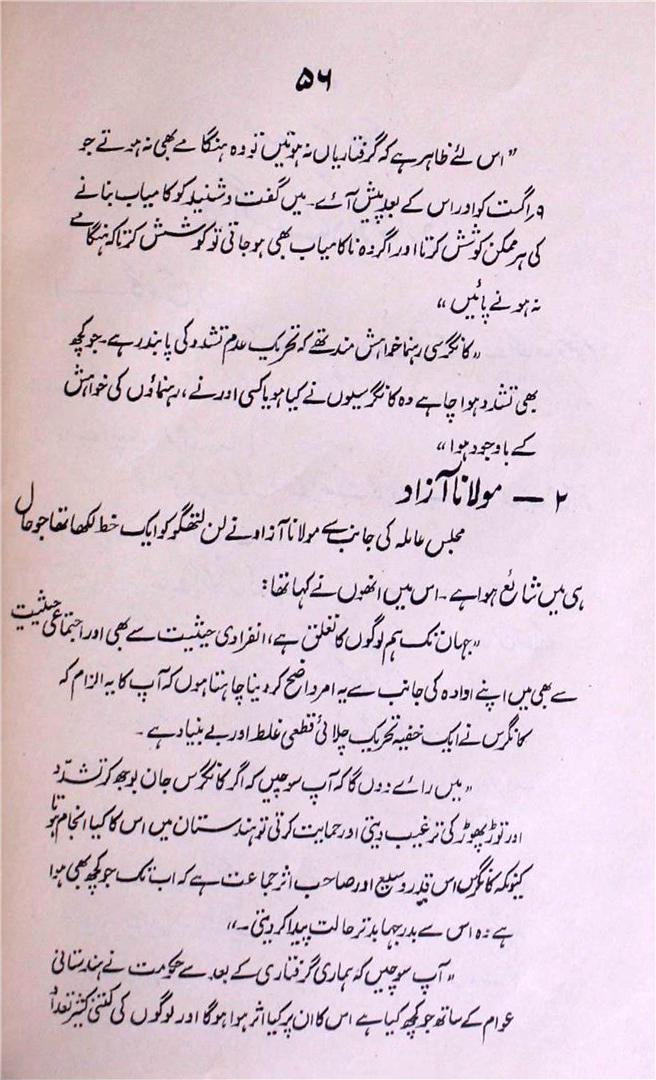 ۵۶
"اس لئے ظاہر ہے کہ گرفتاریاں نہ ہوتیں تو وہ ہنگامے بھی نہ ہوتے جو
۹ اگست کو اور اس کے بعد پیش آئے۔ میں گفت و شنید کو کامیاب بنانے
کی ہر ممکن کوشش کرتا اور اگر وہ ناکامیاب بھی ہو جاتی تو کوشش کرتا کہ ہنگامے
نہ ہونے پائیں"
"کانگرسی رہنما خواہش مند تھے کہ تحریک عدم تشدد کی پابند رہے۔ جو کچھ
بھی تشدد ہوا چاہے وہ کانگرسیوں نے کیا ہو یا کسی اور نے، رہنماؤں کی خواہش
کے باوجود ہوا"
۲ — مولانا آزاد
مجلس عاملہ کی جانب سے مولانا آزاد نے لن لتھگو کو ایک خط لکھا تھا جو حال
ہی میں شائع ہوا ہے۔ اس میں انھوں نے کہا تھا:
"جہاں تک ہم لوگوں کا تعلق ہے، انفرادی حیثیت سے بھی اور اجتماعی حیثیت
سے بھی میں اپنے ادارہ کی جانب سے یہ امر واضح کر دینا چاہتا ہوں کہ آپ کا یہ الزام کہ
کانگرس نے ایک خفیہ تحریک چلائی قطعی غلط اور بے بنیاد ہے۔
"میں رائے دوں گا کہ آپ سوچیں کہ اگر کانگرس جان بوجھ کر تشدّد
اور توڑ پھوڑ کی ترغیب دیتی اور حمایت کرتی تو ہندستان میں اس کا کیا انجام ہوتا
کیونکہ کانگرس اس قدر وسیع اور صاحب اثر جماعت ہے کہ اب تک جو کچھ بھی ہوا
ہے وہ اس سے بدرجہا بدتر حالت پیدا کر دیتی۔"
"آپ سوچیں کہ ہماری گرفتاری کے بعد سے حکومت نے ہندستانی
عوام کے ساتھ جو کچھ کیا ہے اس کا ان پر کیا اثر ہوا ہوگا اور لوگوں کی کتنی کثیر تعداد